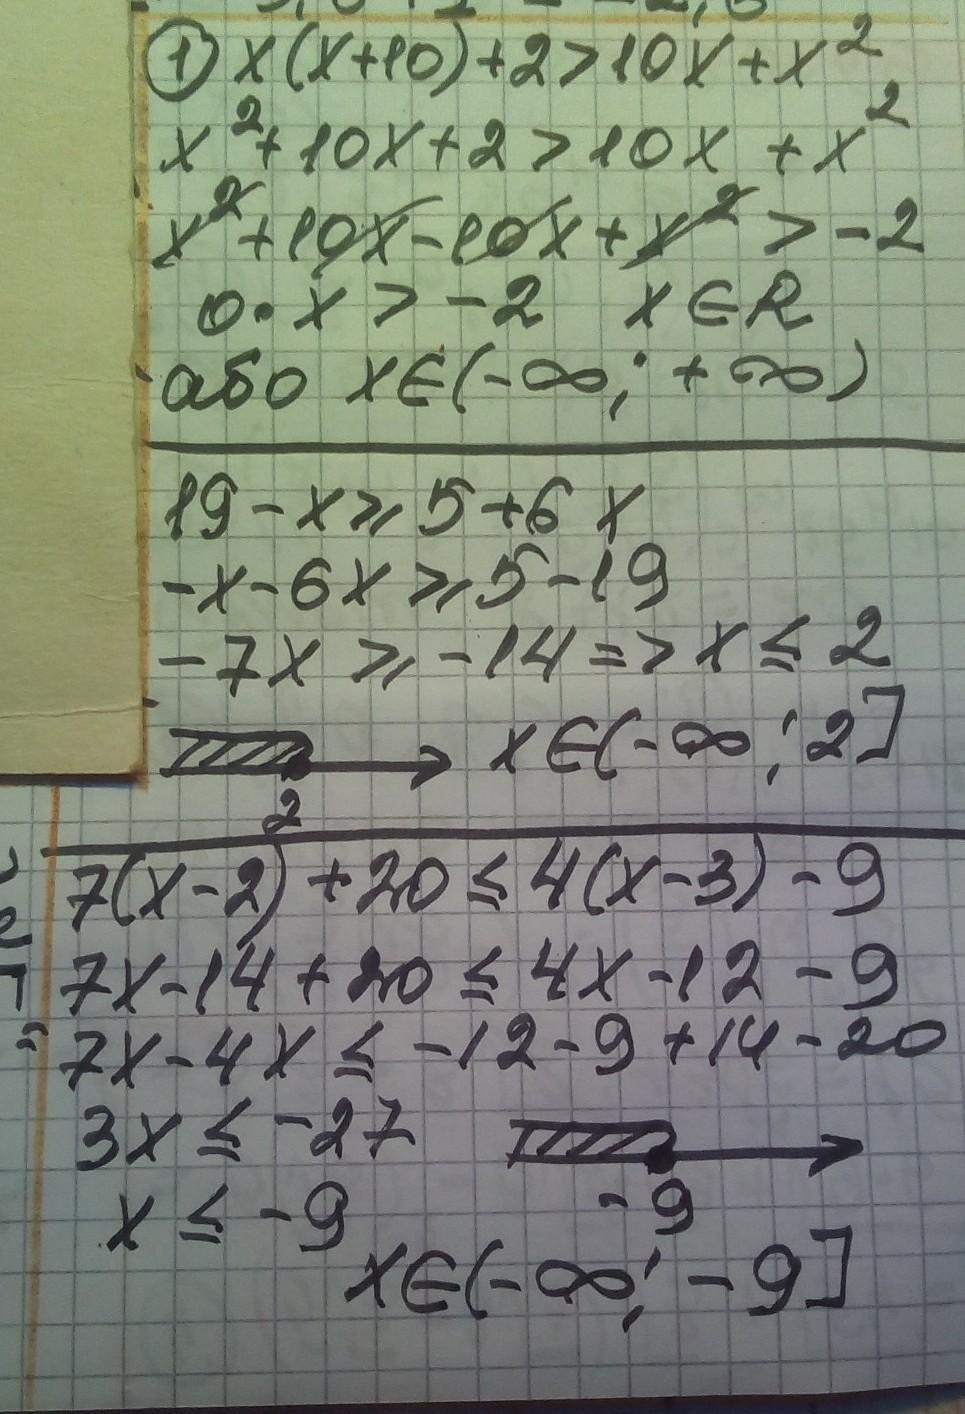 ① x(x+10)+2>10x+x²
x²+10x+2>10x+x²
x²+10x-10x+x²>-2
0·x>-2 x∈R
або x∈(-∞;+∞)
19-x⩾5+6x
-x-6x⩾5-19
-7x⩾-14=>x≤2
x∈(-∞;2]
2
7(x-2)+20≤4(x-3)-9
7x-14+20≤4x-12-9
7x-4x≤-12-9+14-20
3x≤-27
x≤-9
-9
x∈(-∞;-9]